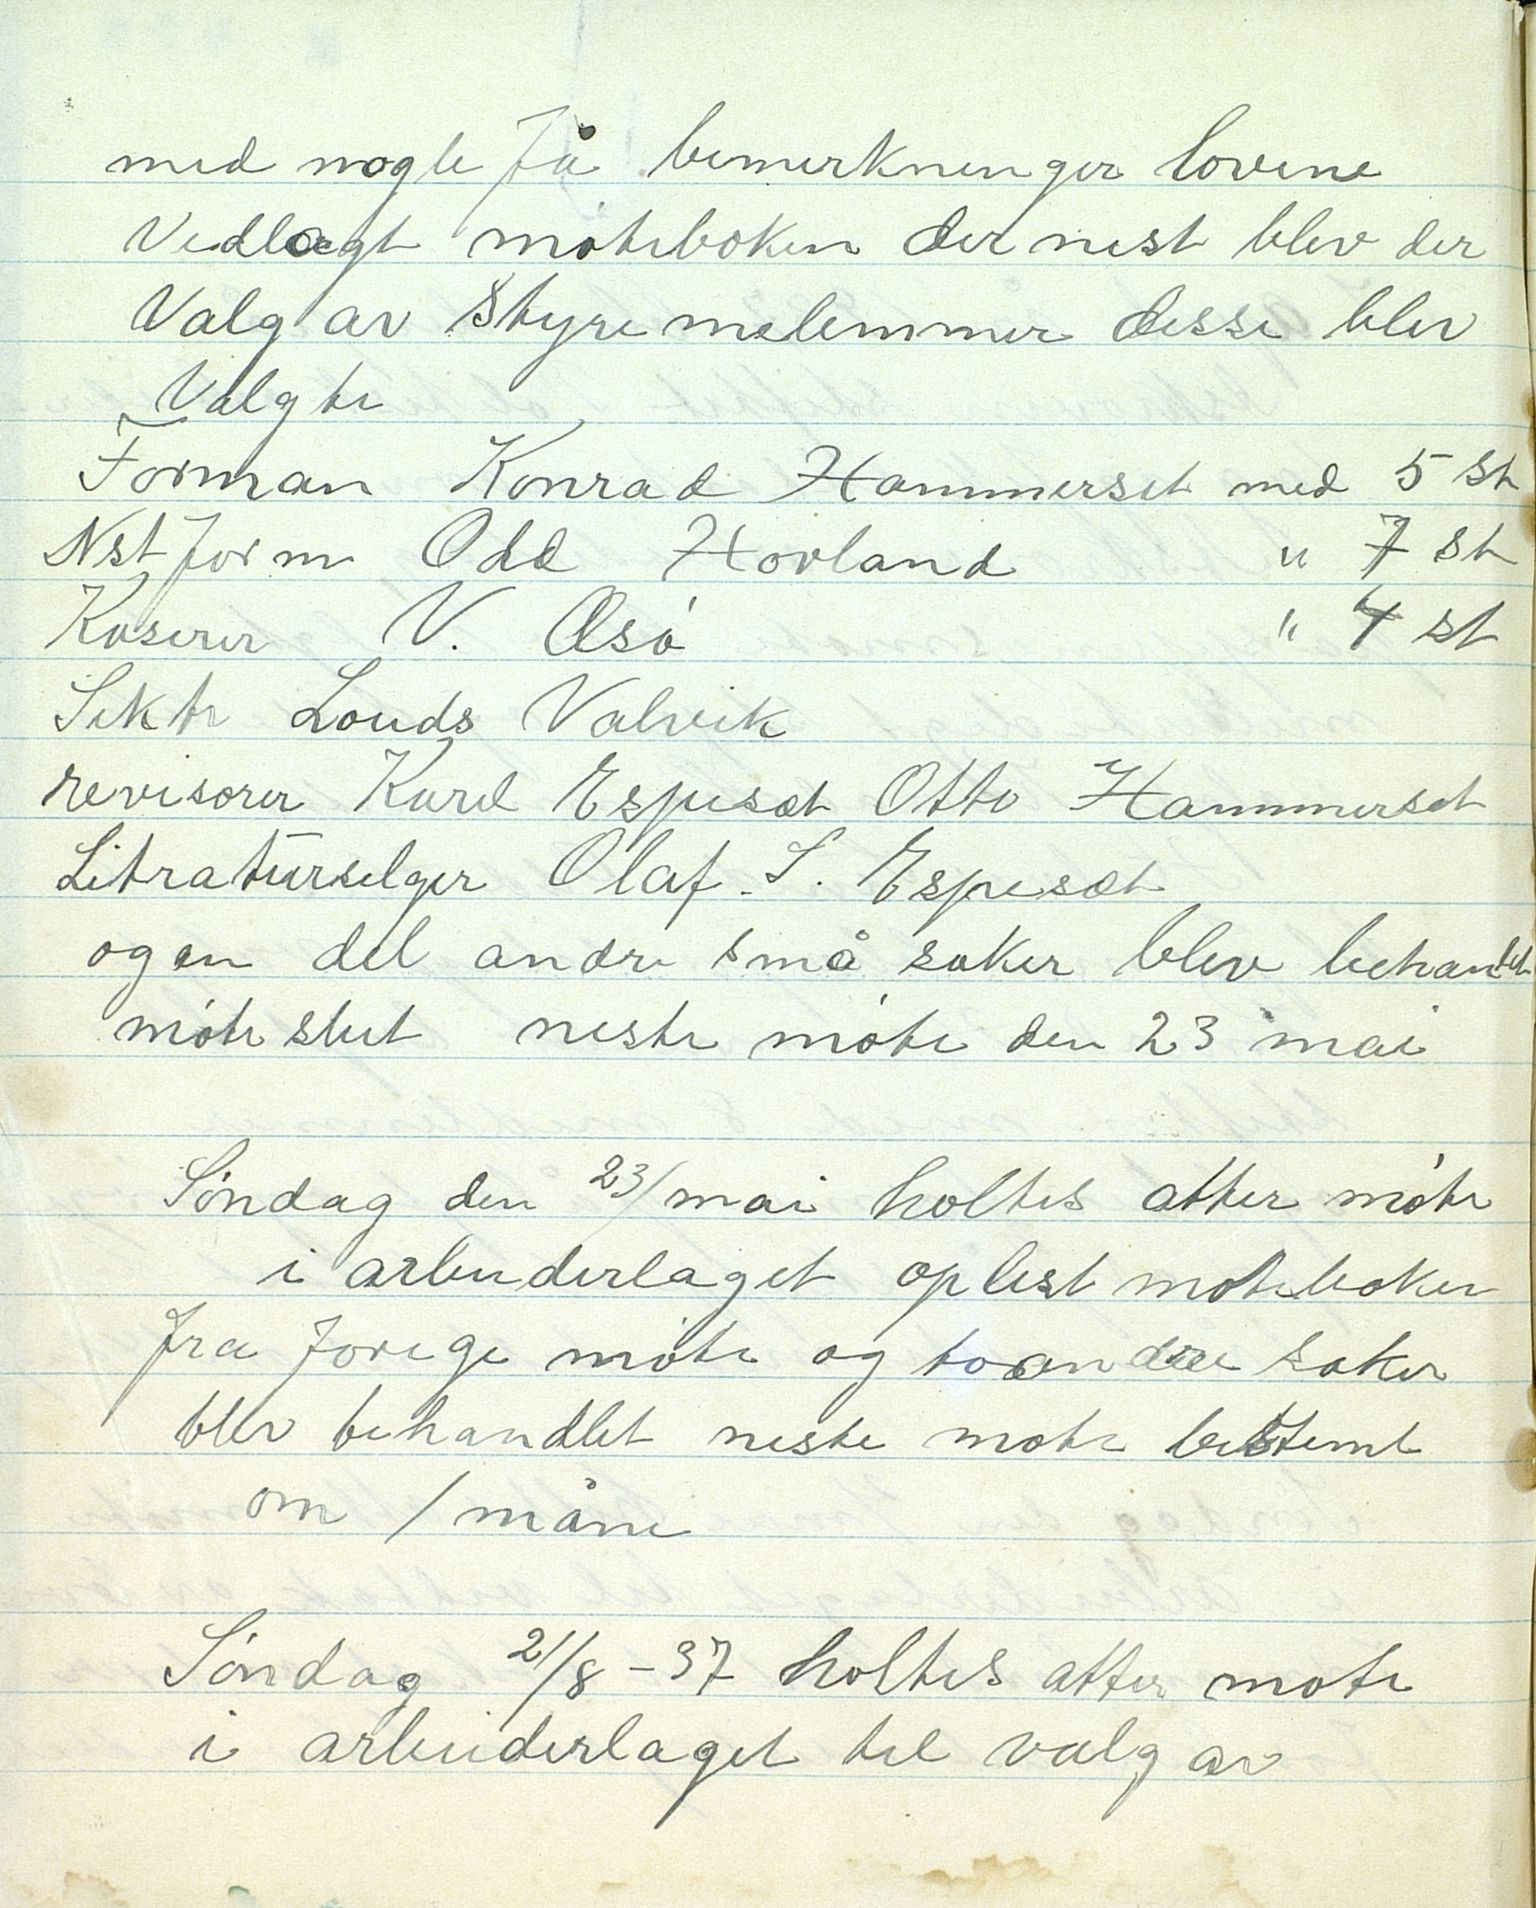 med nogle få bemerkninger lovene
Vedlagt møteboken der nest blev der
Valg av Styremelemmer disse blev
Valgte
Forman Konrad Hammerset med 5 st
Nstform Odd Hovland " 7 st
Kaserer V. Øsø " 4 st
Sektr Louds Valvik
revisorer Karel Espeset Otto Hammerset
Litraturselger Olaf. S. Espeset
og en del andre små saker blev behandlet
møte slut neste møte den 23 mai
Søndag den 23/mai holtes atter møte
i arbeiderlaget oplest møteboken
fra forige møte og to andre saker
blev behandlet neste møte bestemt
om 1 måne
Søndag 21/8 - 37 holtes atter møte
i arbeiderlaget til valg av